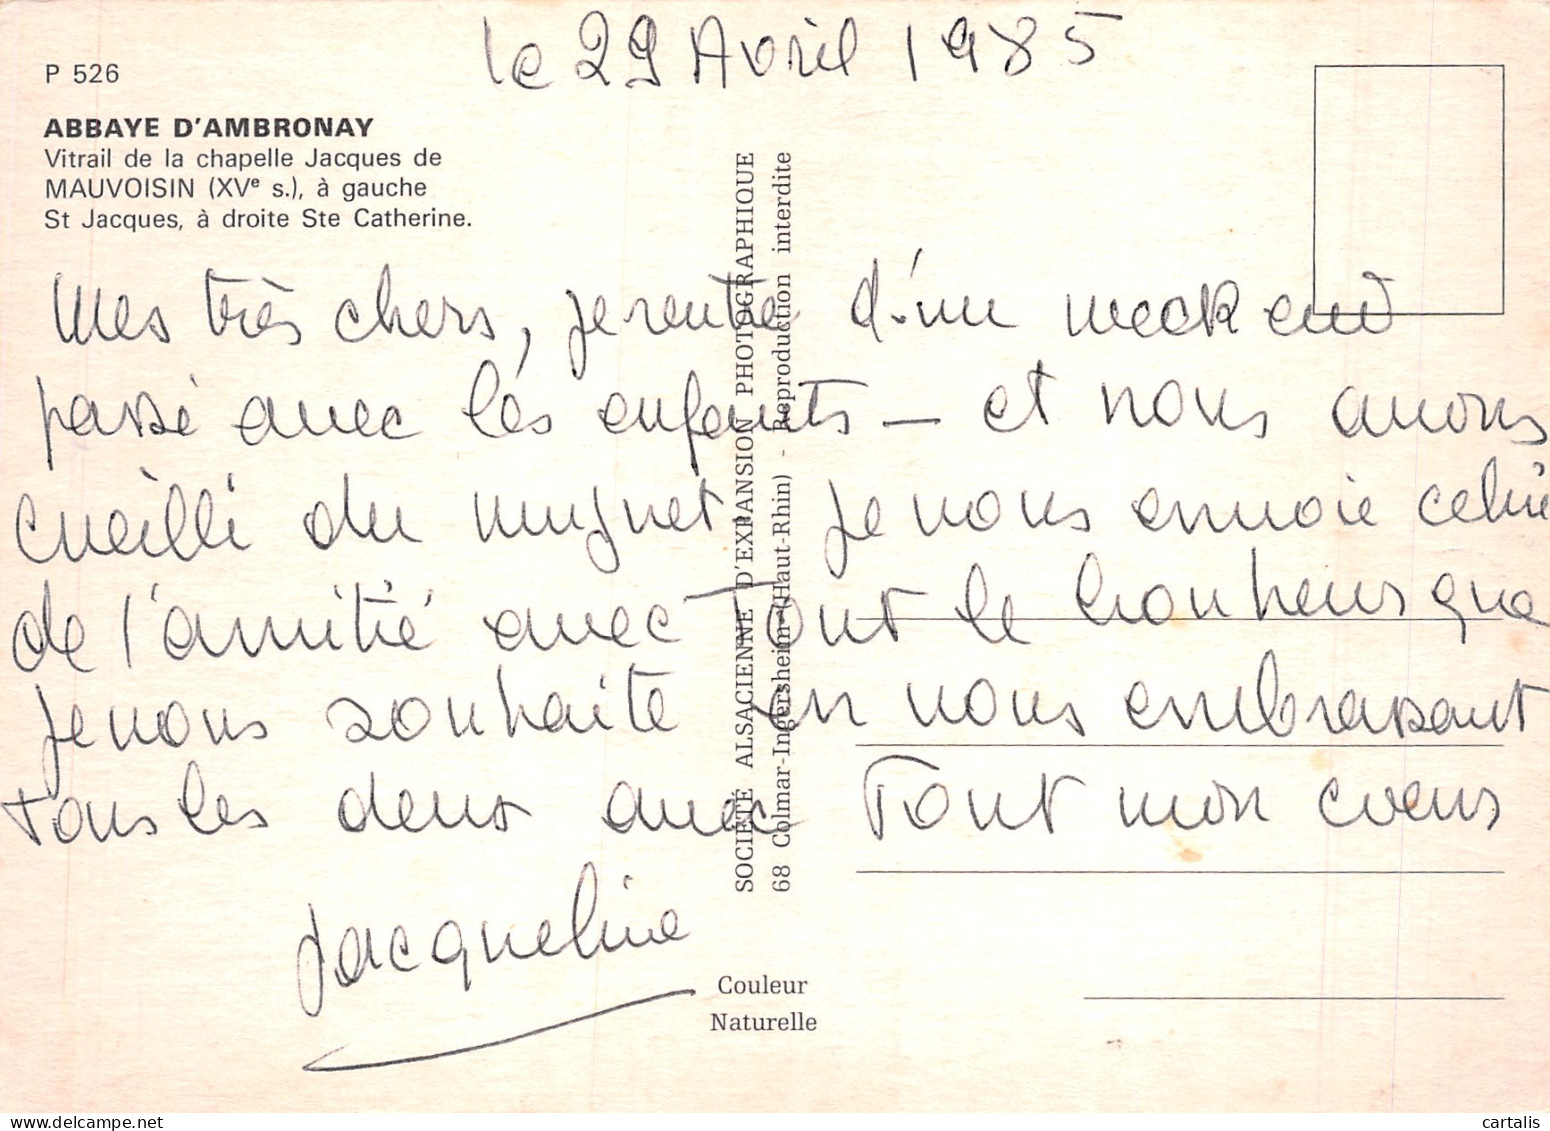 le 29 Avril 1985
P 526
ABBAYE D'AMBRONAY
Vitrail de la chapelle Jacques de
MAUVOISIN (XVe s.), à gauche
St Jacques, à droite Ste Catherine.
Mes très chers, je rentre d'un weekend
passé avec les enfants — et nous avons
cueilli du muguet je vous envoie celui
de l'amitié avec Tout le bonheur que
je vous souhaite en vous embrassant
tous les deux avec Tout mon coeur
Jacqueline
SOCIÉTÉ ALSACIENNE D'EXPANSION PHOTOGRAPHIQUE
68 Colmar-Ingersheim (Haut-Rhin) - Reproduction interdite
Couleur
Naturelle
delcampe.net
cartalis